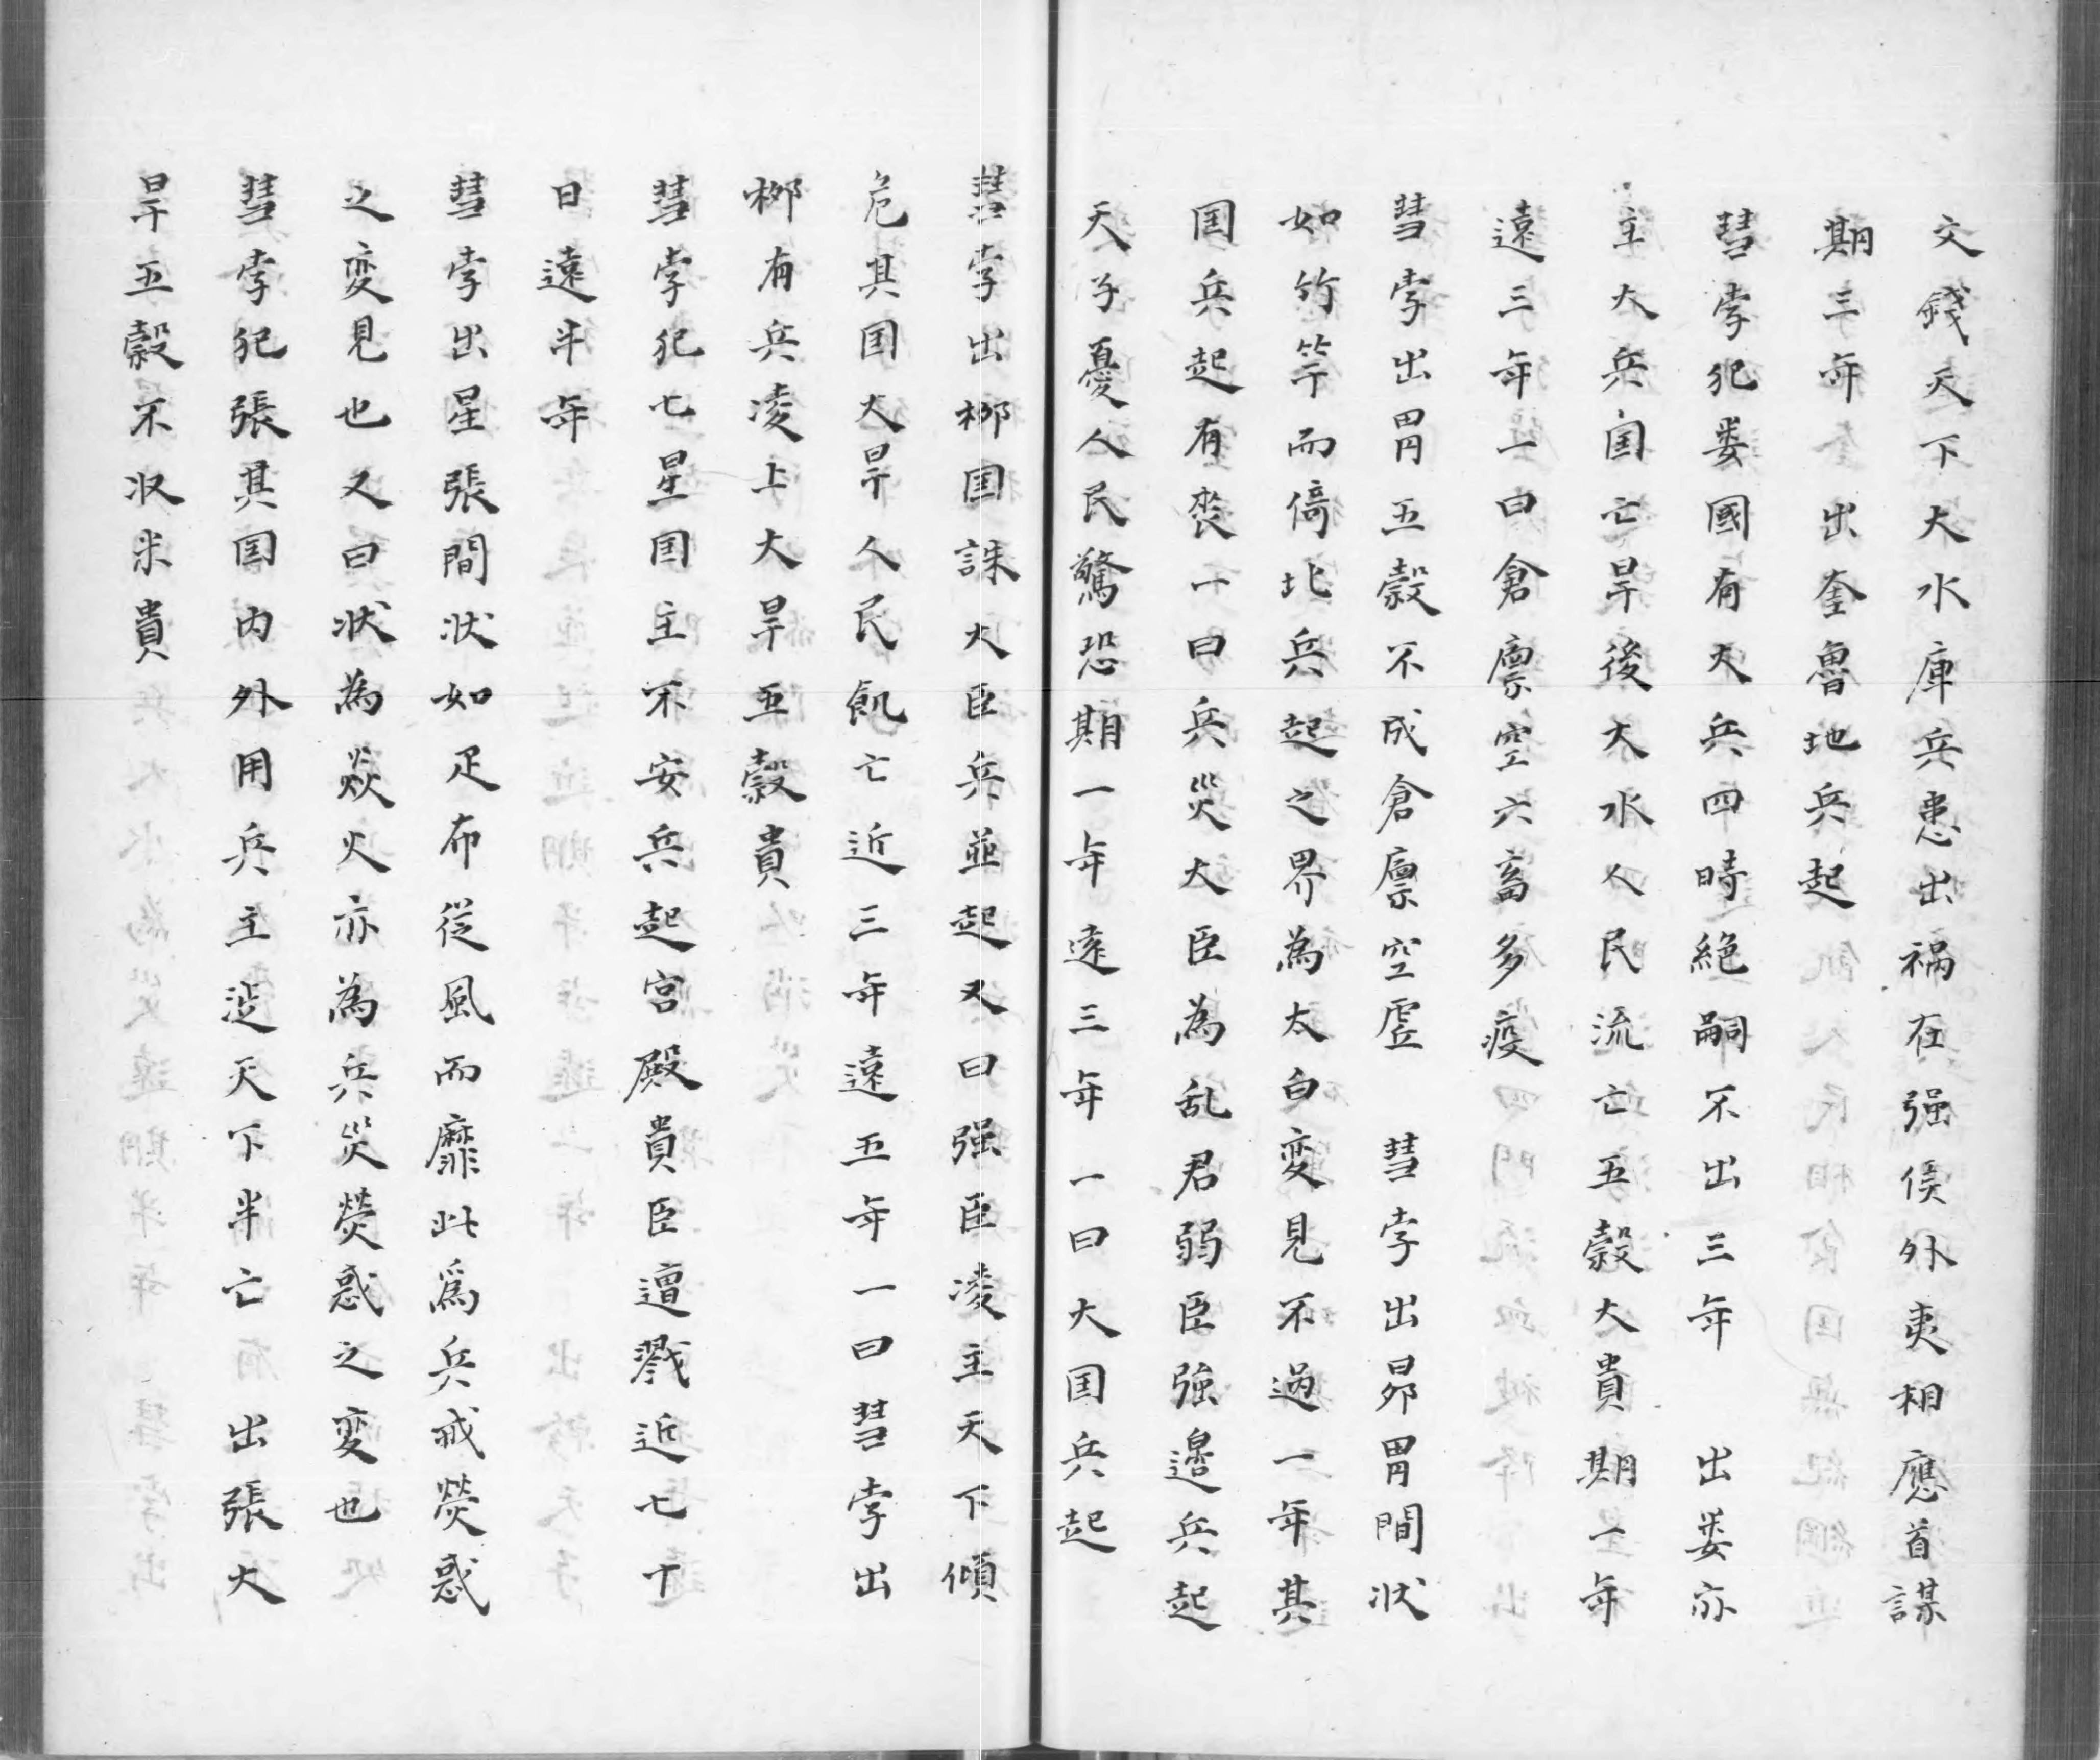 文錢天下大水庫兵患出禍在强侯外夷相應首謀
期三年 出奎魯地兵起
彗孛犯娄國有大兵四時絕嗣不出三年 出娄亦
主大兵国亡旱後大水人民流亡五穀大貴期一年
遠三年一曰倉廪空六畜多疫
彗孛出胃五穀不成倉廪空虗 彗孛出昴胃間状
如竹竿而倚北兵起之界為太白変見不過一年其
国兵起有喪一曰兵災大臣為乱君弱臣強邉兵起
天子憂人民驚恐期一年遠三年一曰大国兵起
彗孛出栁国誅大臣兵並起又曰强臣凌主天下傾
危其国大旱人民飢亡近三年遠五年一曰彗孛出
栁有兵凌上大旱五穀貴
彗孛犯七星国主不安兵起宮殿貴臣邅戮近七十
日遠半年
彗孛出星張間状如疋布従風而靡此爲兵戒熒惑
之変見也又曰状為焱火亦為兵災熒惑之変也
彗孛犯張其国内外用兵主逆天下半亡 出張大
旱五穀不収米貴